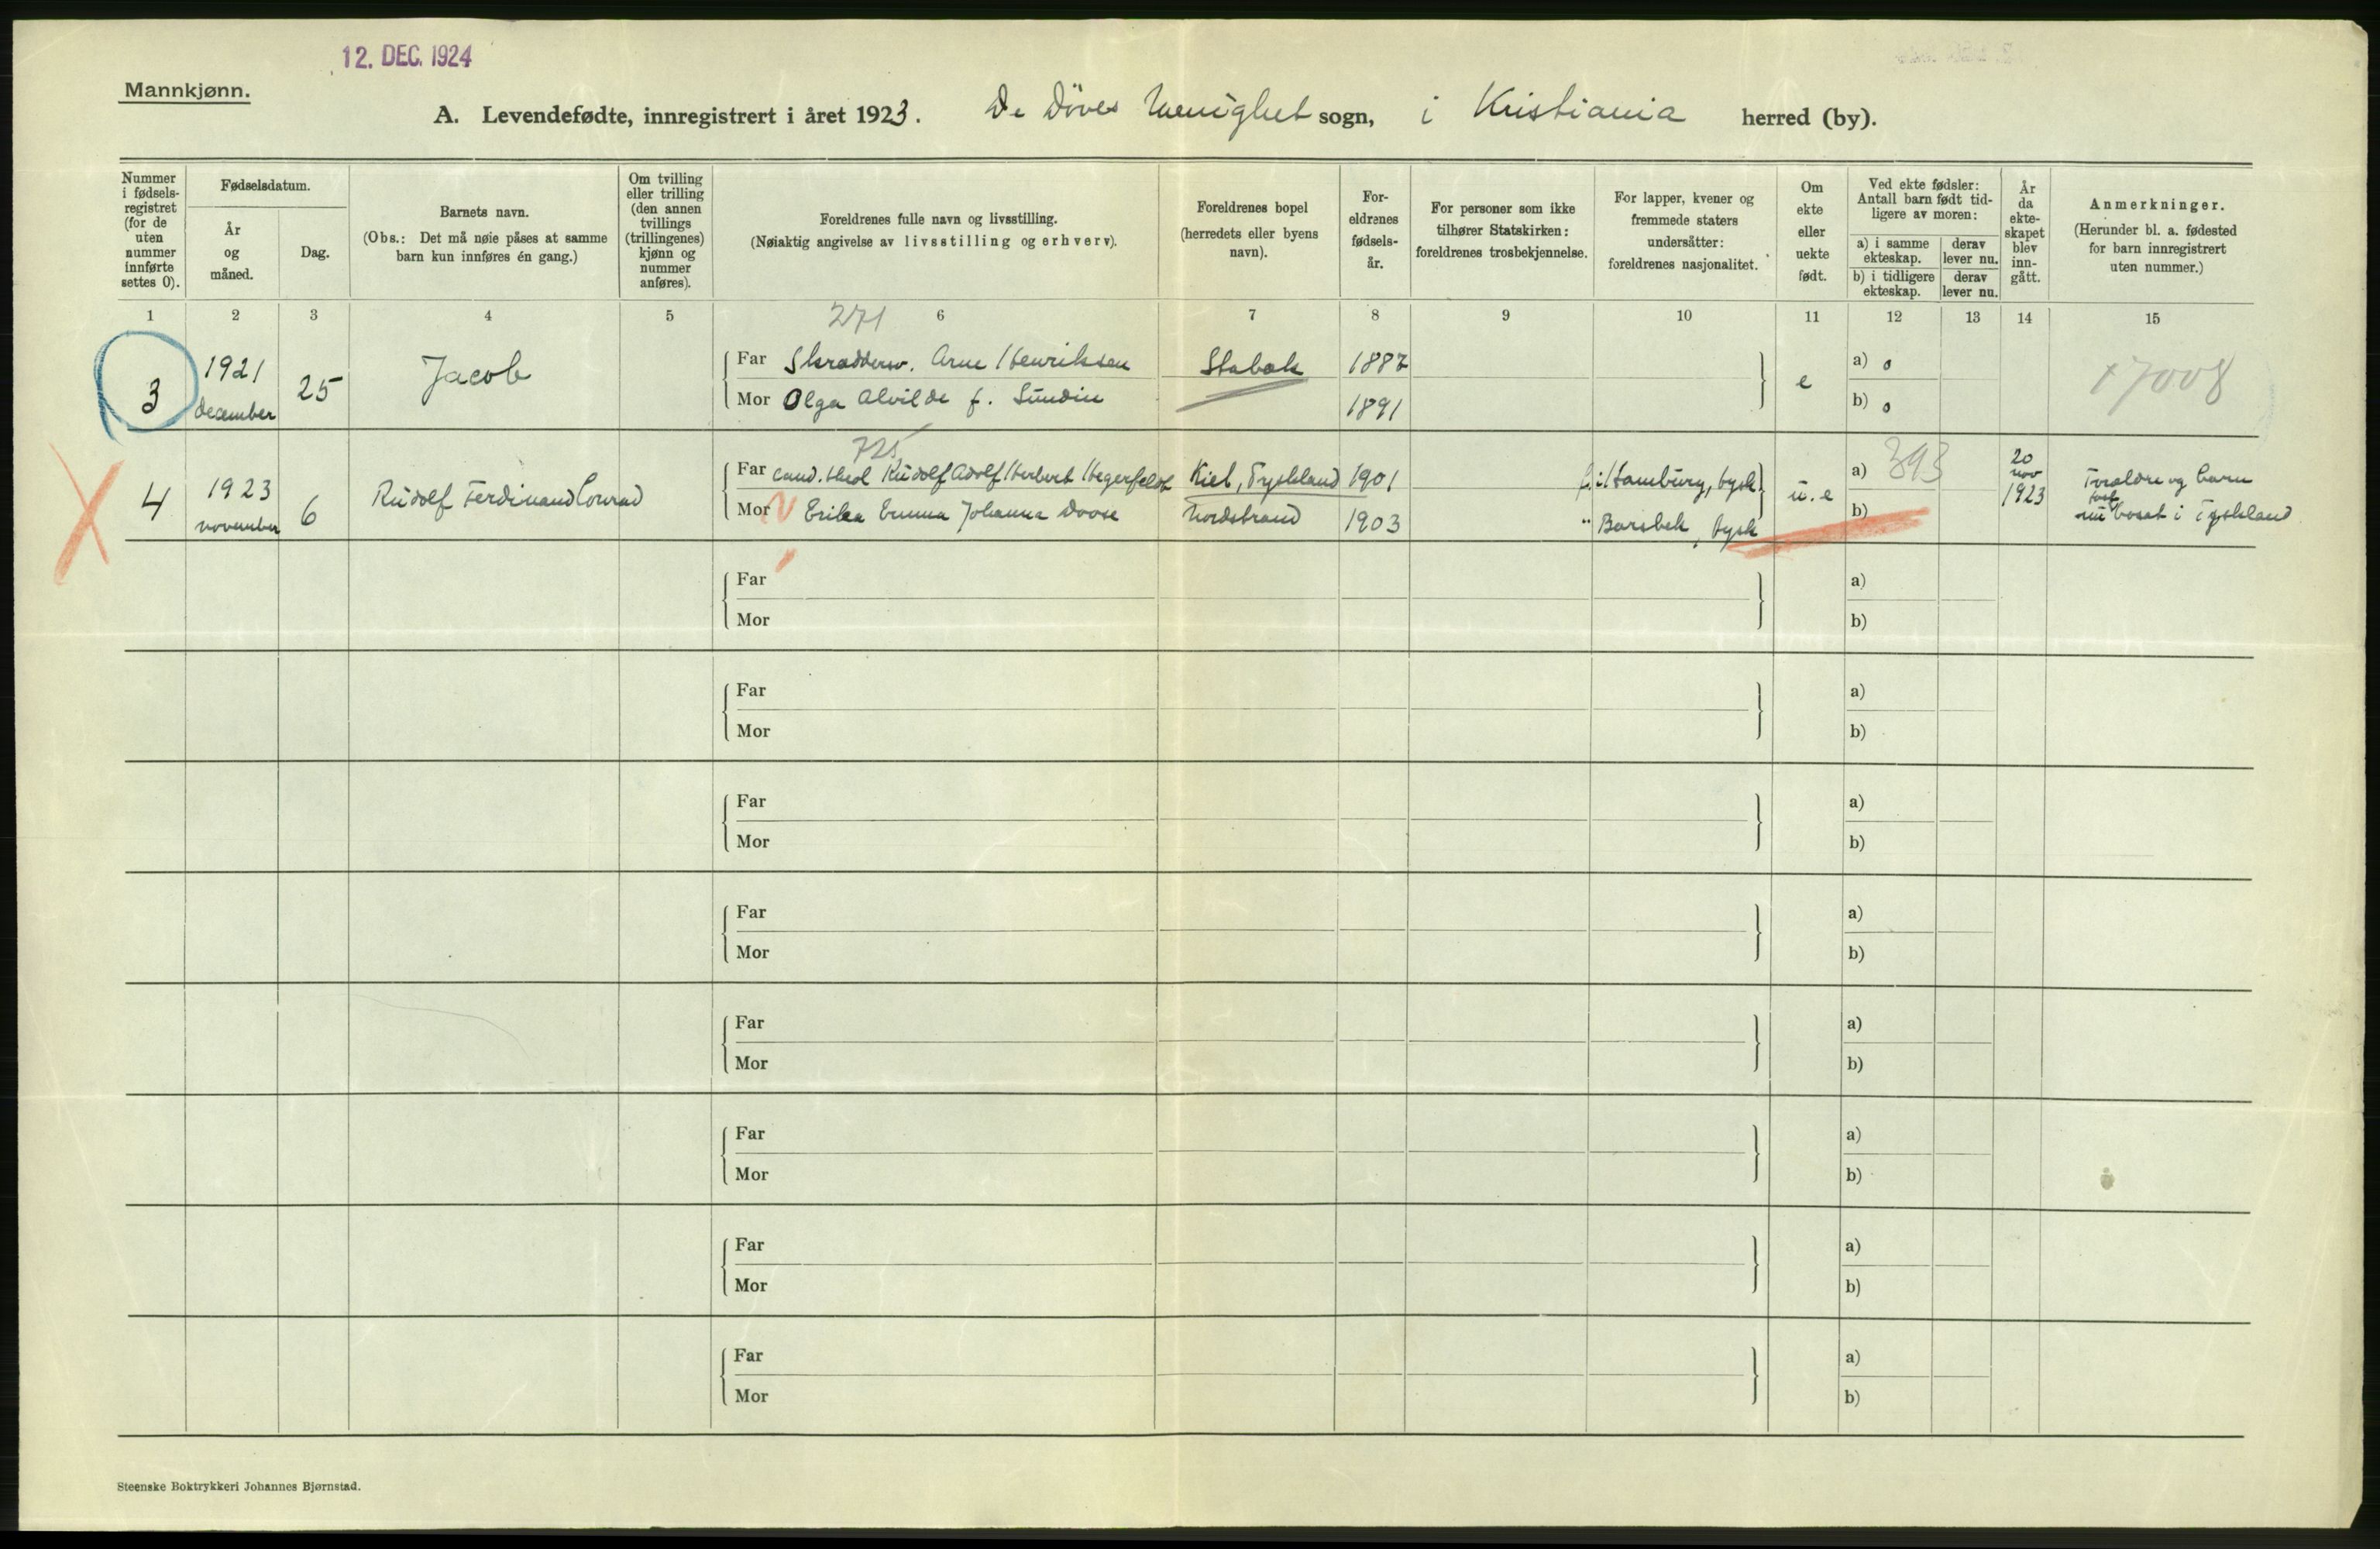 12. DEC. 1924
Mannkjønn.
A. Levendefødte, innregistrert i året 1923. De Døves Menighet sogn, i Kristiania herred (by).
Nummer i fødsels-registret (for de uten nummer innførte settes 0).
Fødselsdatum.
År og måned.
Dag.
Barnets navn.
(Obs.: Det må nøie påses at samme barn kun innføres én gang.)
Om tvilling eller trilling (den annen tvillings (trillingenes) kjønn og nummer anføres).
Foreldrenes fulle navn og livsstilling.
(Nøiaktig angivelse av livsstilling og erhverv).
Foreldrenes bopel (herredets eller byens navn).
For-eldrenes fødsels-år.
For personer som ikke tilhører Statskirken: foreldrenes trosbekjennelse.
For lapper, kvener og fremmede staters undersåtter: foreldrenes nasjonalitet.
Om ekte eller uekte født.
Ved ekte fødsler: Antall barn født tid-ligere av moren:
a) i samme ekteskap.
derav lever nu.
b) i tidligere ekteskap.
derav lever nu.
År da ekte-skapet blev inn-gått.
Anmerkninger.
(Herunder bl. a. fødested for barn innregistrert uten nummer.)
1 2 3 4 5 6 7 8 9 10 11 12 13 14 15
271
3 1921 december 25 Jacob
Far Skrædderw. Arne Henriksen Stabæk 1887
Mor Olga Alvilde f. Sundin 1891
e a) 0
b) 0
17008
725
4 1923 november 6 Rudolf Ferdinand Conrad
Far cand. theol Rudolf Adolf Herbert Hegerfeldt Kiel, Tyskland 1901 f. i Hamburg, tysk
Mor Erika Emma Johanna Doose Nordstrand 1903 " Barsbek, tysk
u. e a) 393
b)
20 nov 1923
Forældre og barn
nu bosat i Tyskland
Far a)
Mor b)
Far a)
Mor b)
Far a)
Mor b)
Far a)
Mor b)
Far a)
Mor b)
Far a)
Mor b)
Far a)
Mor b)
Far a)
Mor b)
Steenske Boktrykkeri Johannes Bjørnstad.